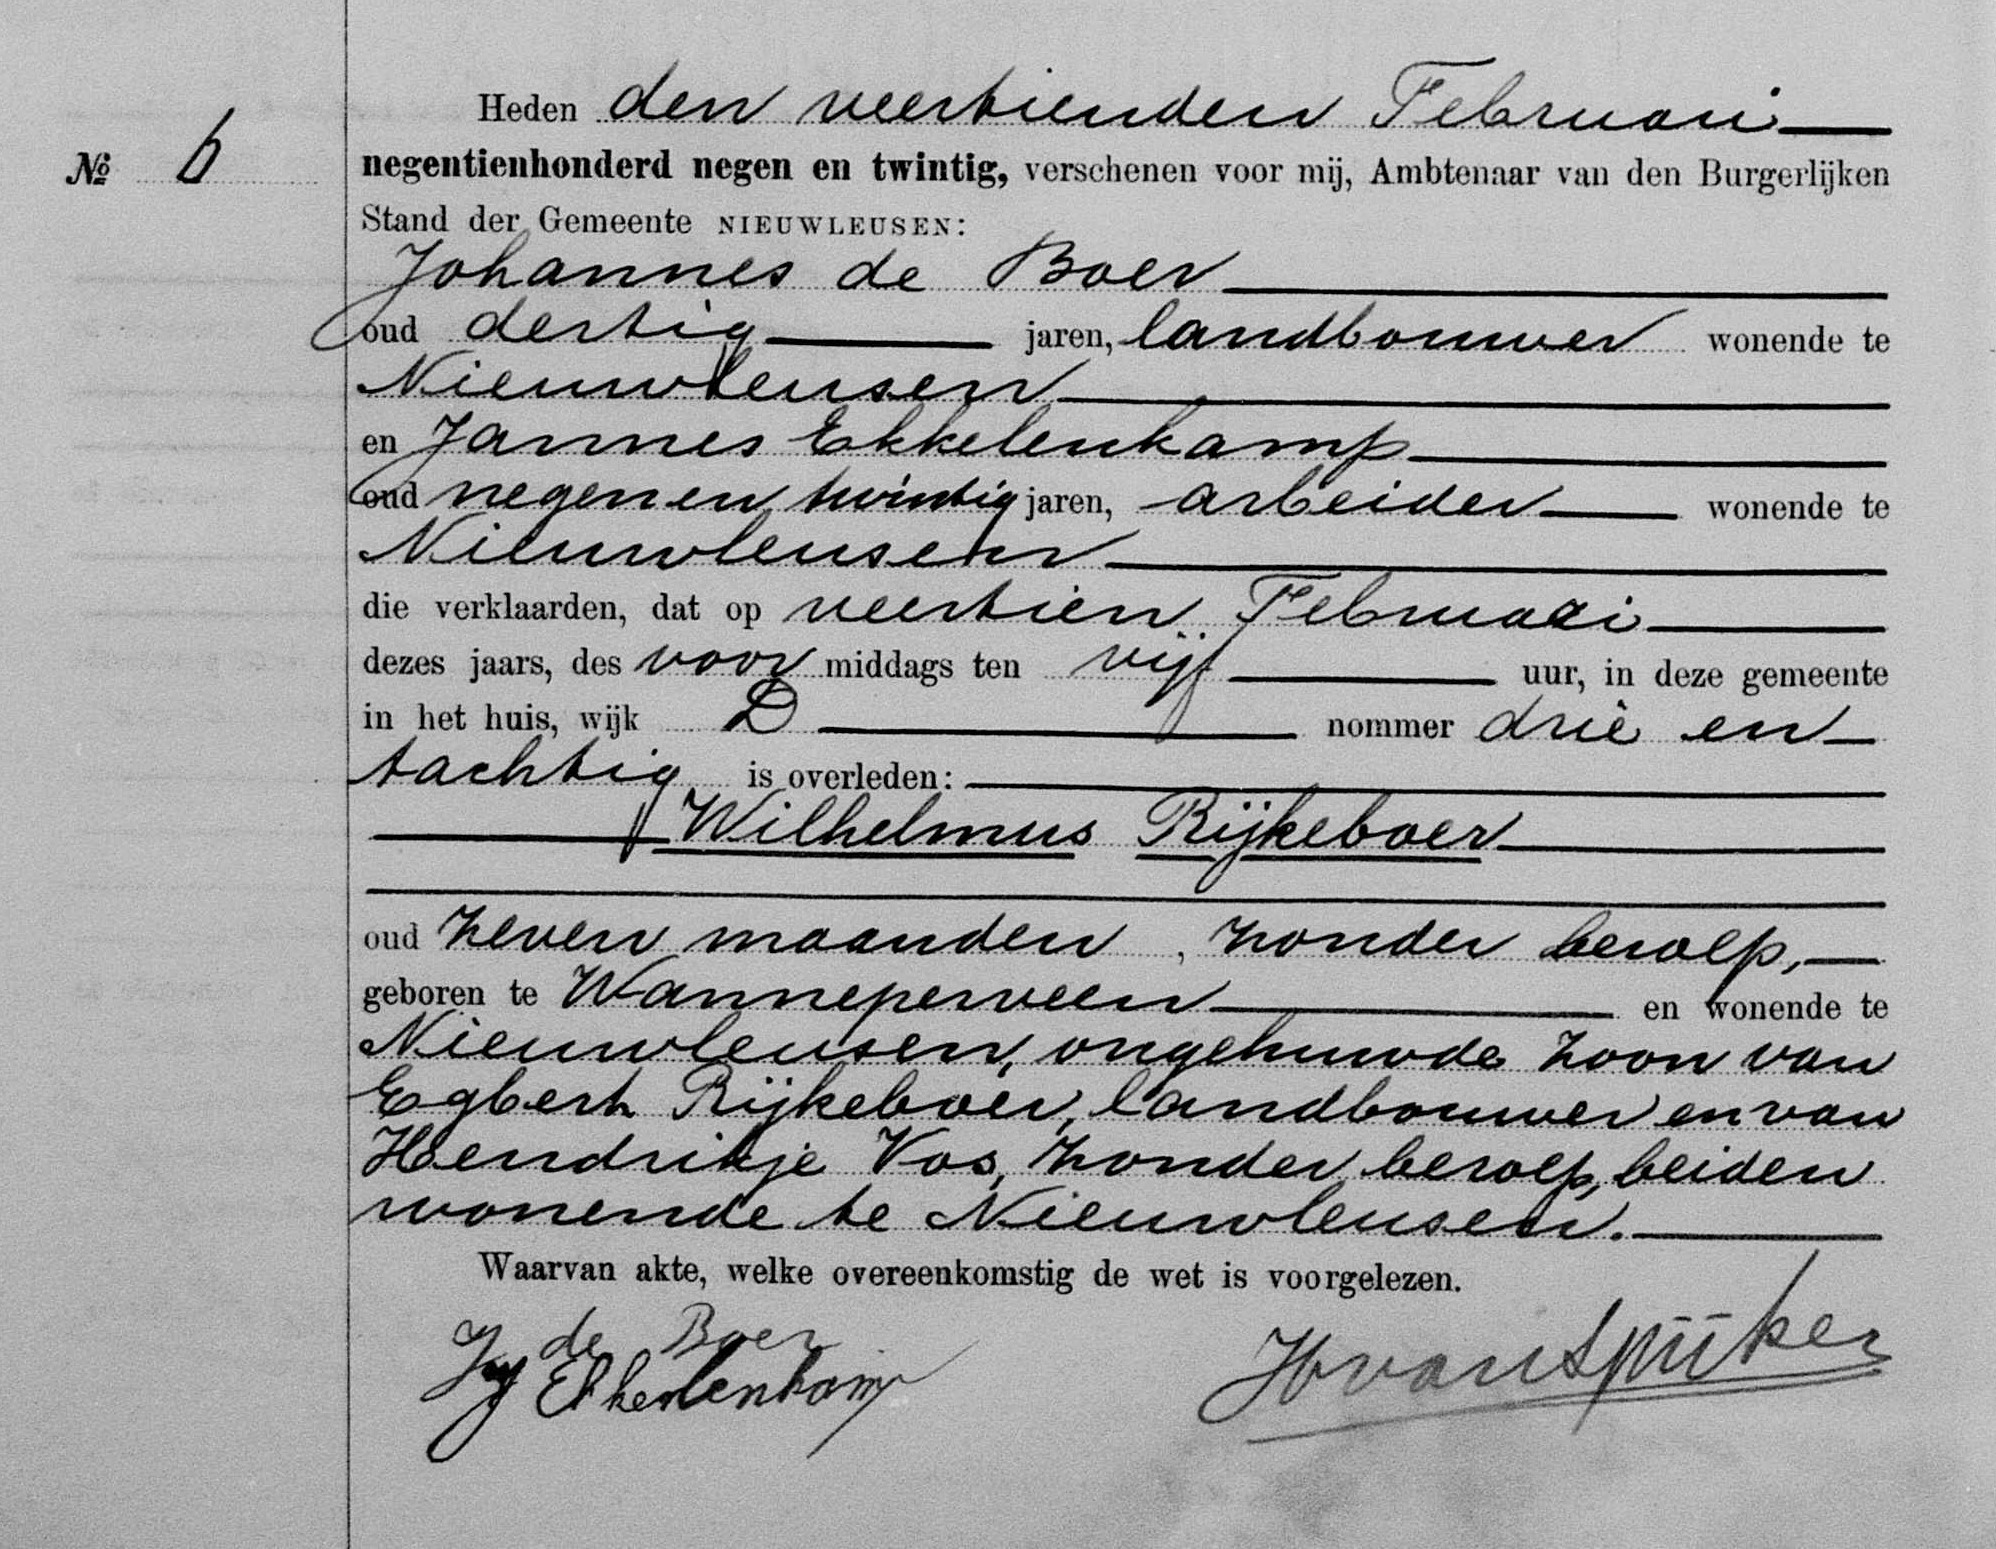 Heden den veertienden Februari
№ 6
negentienhonderd negen en twintig, verschenen voor mij, Ambtenaar van den Burgerlijken
Stand der Gemeente NIEUWLEUSEN:
Johannes de Boer
oud dertig jaren, landbouwer wonende te
Nieuwleusen
en Jannes Ekkelenkamp
oud negen en twintig jaren, arbeider wonende te
Nieuwleusen
die verklaarden, dat op veertien Februari
dezes jaars, des voor middags ten vijf uur, in deze gemeente
in het huis, wijk D nommer drie en
tachtig is overleden:
Wilhelmus Rijkeboer
oud zeven maanden, zonder beroep,
geboren te Wanneperveen en wonende te
Nieuwleusen, ongehuwde zoon van
Egbert Rijkeboer, landbouwer en van
Hendrikje Vos, zonder beroep, beiden
wonende te Nieuwleusen.
Waarvan akte, welke overeenkomstig de wet is voorgelezen.
J de Boer
J Ekkelenkamp
van Spijker